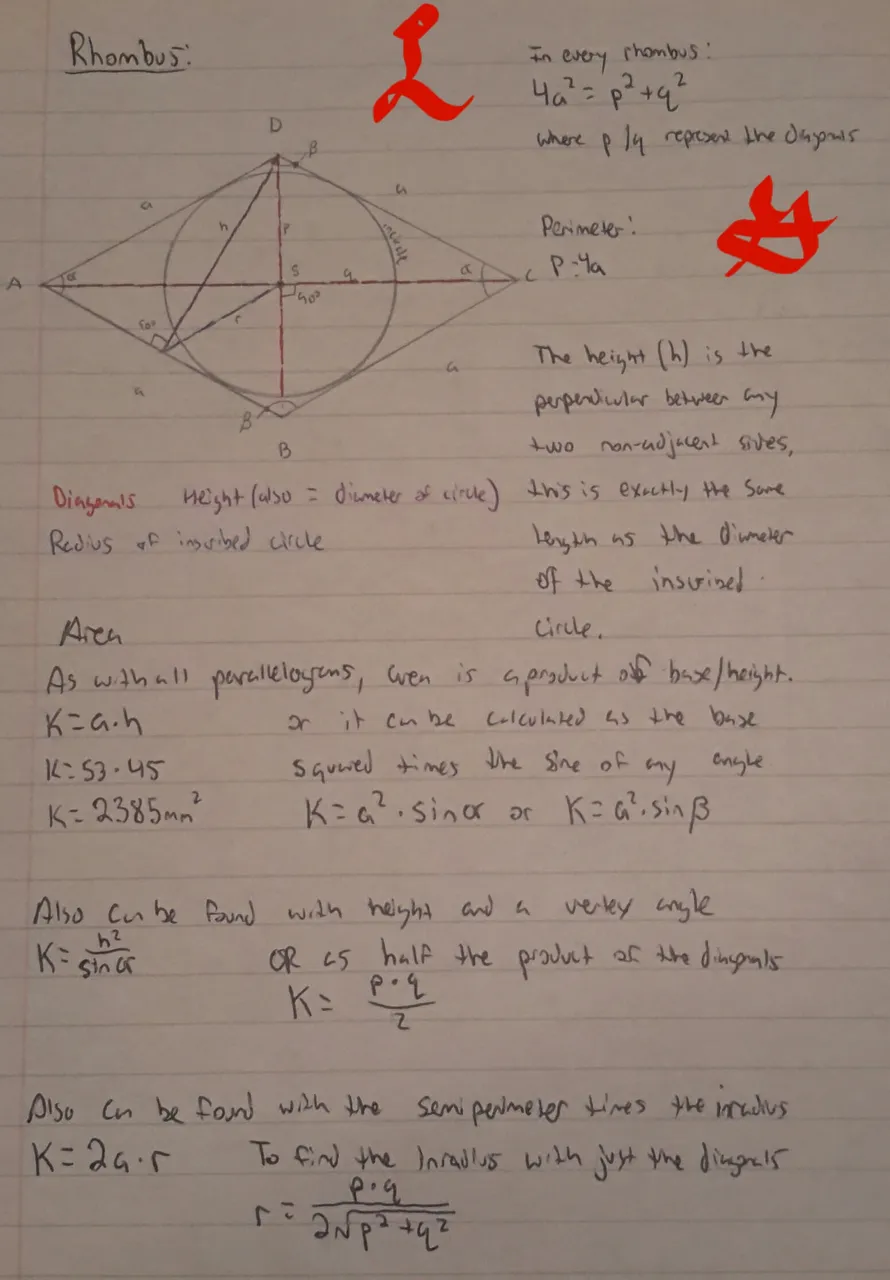 Rhombus:
In every rhombus:
4a² = p² + q²
where p/q represent the diagonals
Perimeter:
P=4a
D
β
a
a
h
p
incircle
A
α
S
q
α
C
90°
90°
r
a
a
β
B
The height (h) is the
perpendicular between any
two non-adjacent sides,
this is exactly the same
length as the diameter
of the inscribed
circle.
Diagonals Height (also = diameter of circle)
Radius of inscribed circle
Area
As with all parallelograms, area is a product of base/height.
K=a·h or it can be calculated as the base
K=53·45 squared times the sine of any angle
K=2385mm² K=a²·sinα or K=a²·sinβ
Also can be found with height and a vertex angle
K=h²/sinα OR as half the product of the diagonals
K= p·q/2
Also can be found with the semiperimeter times the inradius
K=2a·r To find the Inradius with just the diagonals
r= p·q/2√p²+q²